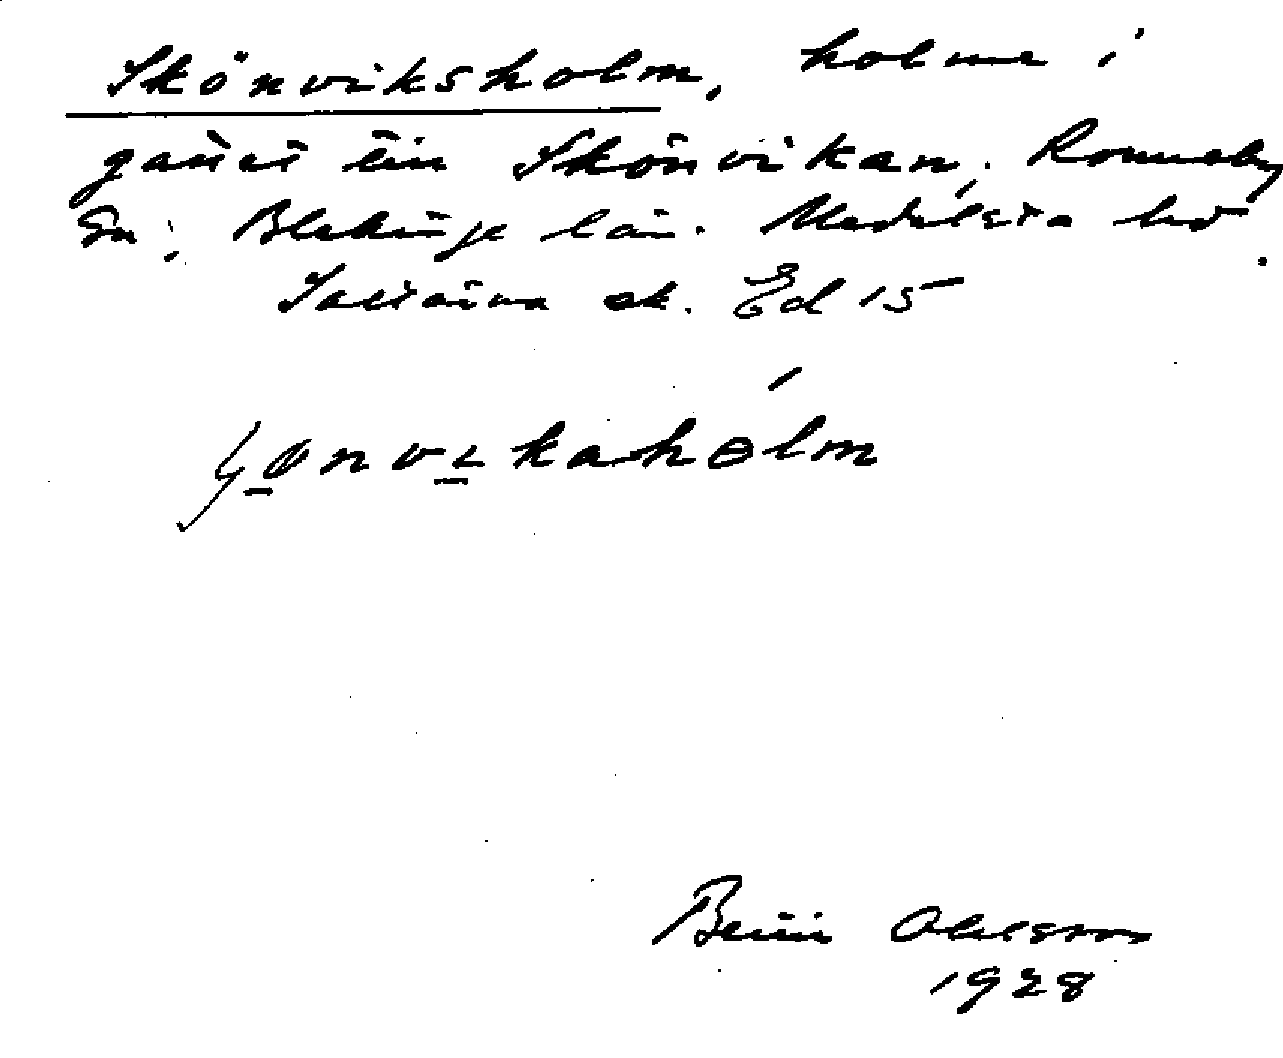 Skönviksholm, holme i
gattet till Skönvikan, Ronneby
Sn; Blekinge län. Medelsta hd.
Saltärna ek. Ed 15
vikahólm
Bertil Ohlsson
1928